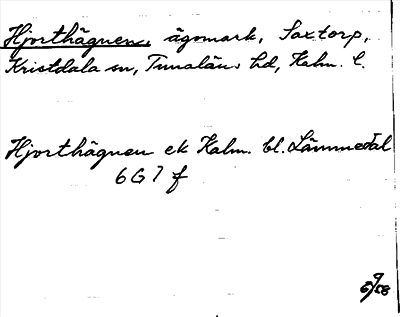 Hjorthägnen, ägomark, Saxtorp,
Kristdala sn, Tunaläns hd, Kalm. l.
Hjorthägnen ek Kalm. bl. Lämmedal
6G7f